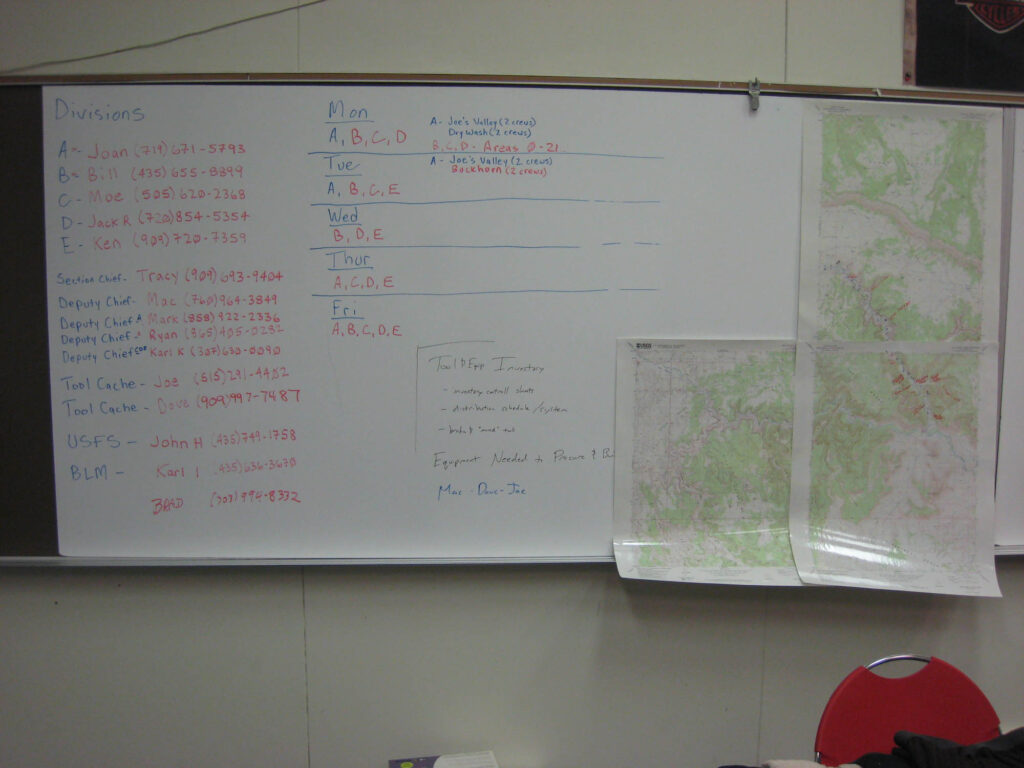 Divisions
A - Joan (719) 671-5793
B - Bill (435) 655-8899
C - Moe (505) 620-2368
D - Jack R (720) 854-5354
E - Ken (909) 720-7359
Section Chief - Tracy (909) 693-9404
Deputy Chief - Mac (760) 964-3849
Deputy Chief A Mark (858) 922-2336
Deputy Chief - Ryan (865) 405-0282
Deputy Chief Karl K (307) 630-0090
Tool Cache - Joe (515) 291-4402
Tool Cache - Dave (909) 997-7487
USFS - John H (435) 749-1758
BLM - Karl I (435) 636-3670
BRAD (303) 994-8332
Mon
A, B, C, D
A - Joe's Valley (2 crews)
Dry Wash (2 crews)
B, C, D - Areas 0-21
Tue
A - Joe's Valley (2 crews)
Buckhorn (2 crews)
A, B, C, E
Wed
B, D, E
Thur
A, C, D, E
Fri
A, B, C, D, E
Tool & Eqp Inventory
- inventory controll sheets
- distribution schedule/system
Equipment Needed to Procure &
Mac - Dave - Joe
USGS